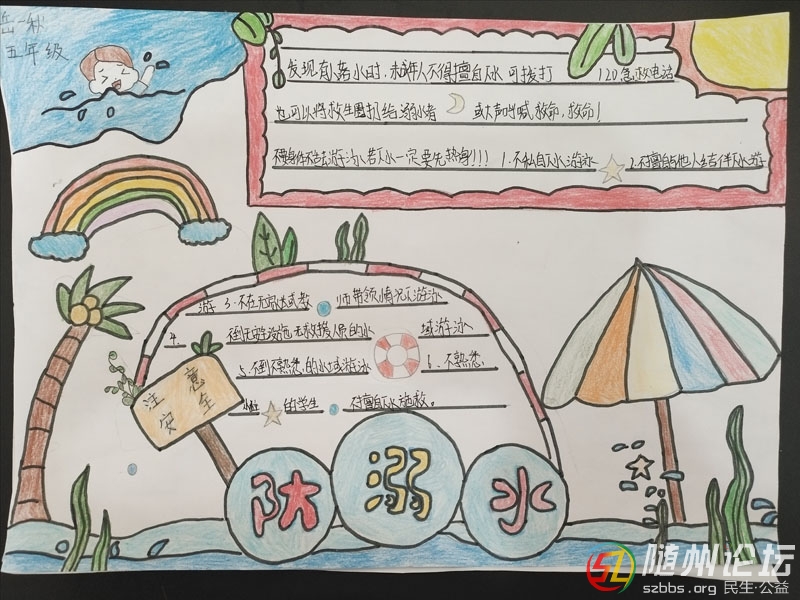 岳一秋
五年级
发现有人落水时,未成年人不得擅自下水 可拨打 120急救电话
也可以将救生圈扔给溺水者 或大声呼喊 救命,救命!
游泳 若下水一定要先热身!!! 1.不私自下水游泳 2.不擅自与他人结伴下水游
游 3.不在无家长或教 师带领情况下游泳
4. 不到无安全设施 无救援人员的水 域游泳
5.不到不熟悉的水域游泳 6.不熟悉
水性 的学生 不擅自下水施救。
注意
安全
防溺水
随州论坛
szbbs.org 民生·公益